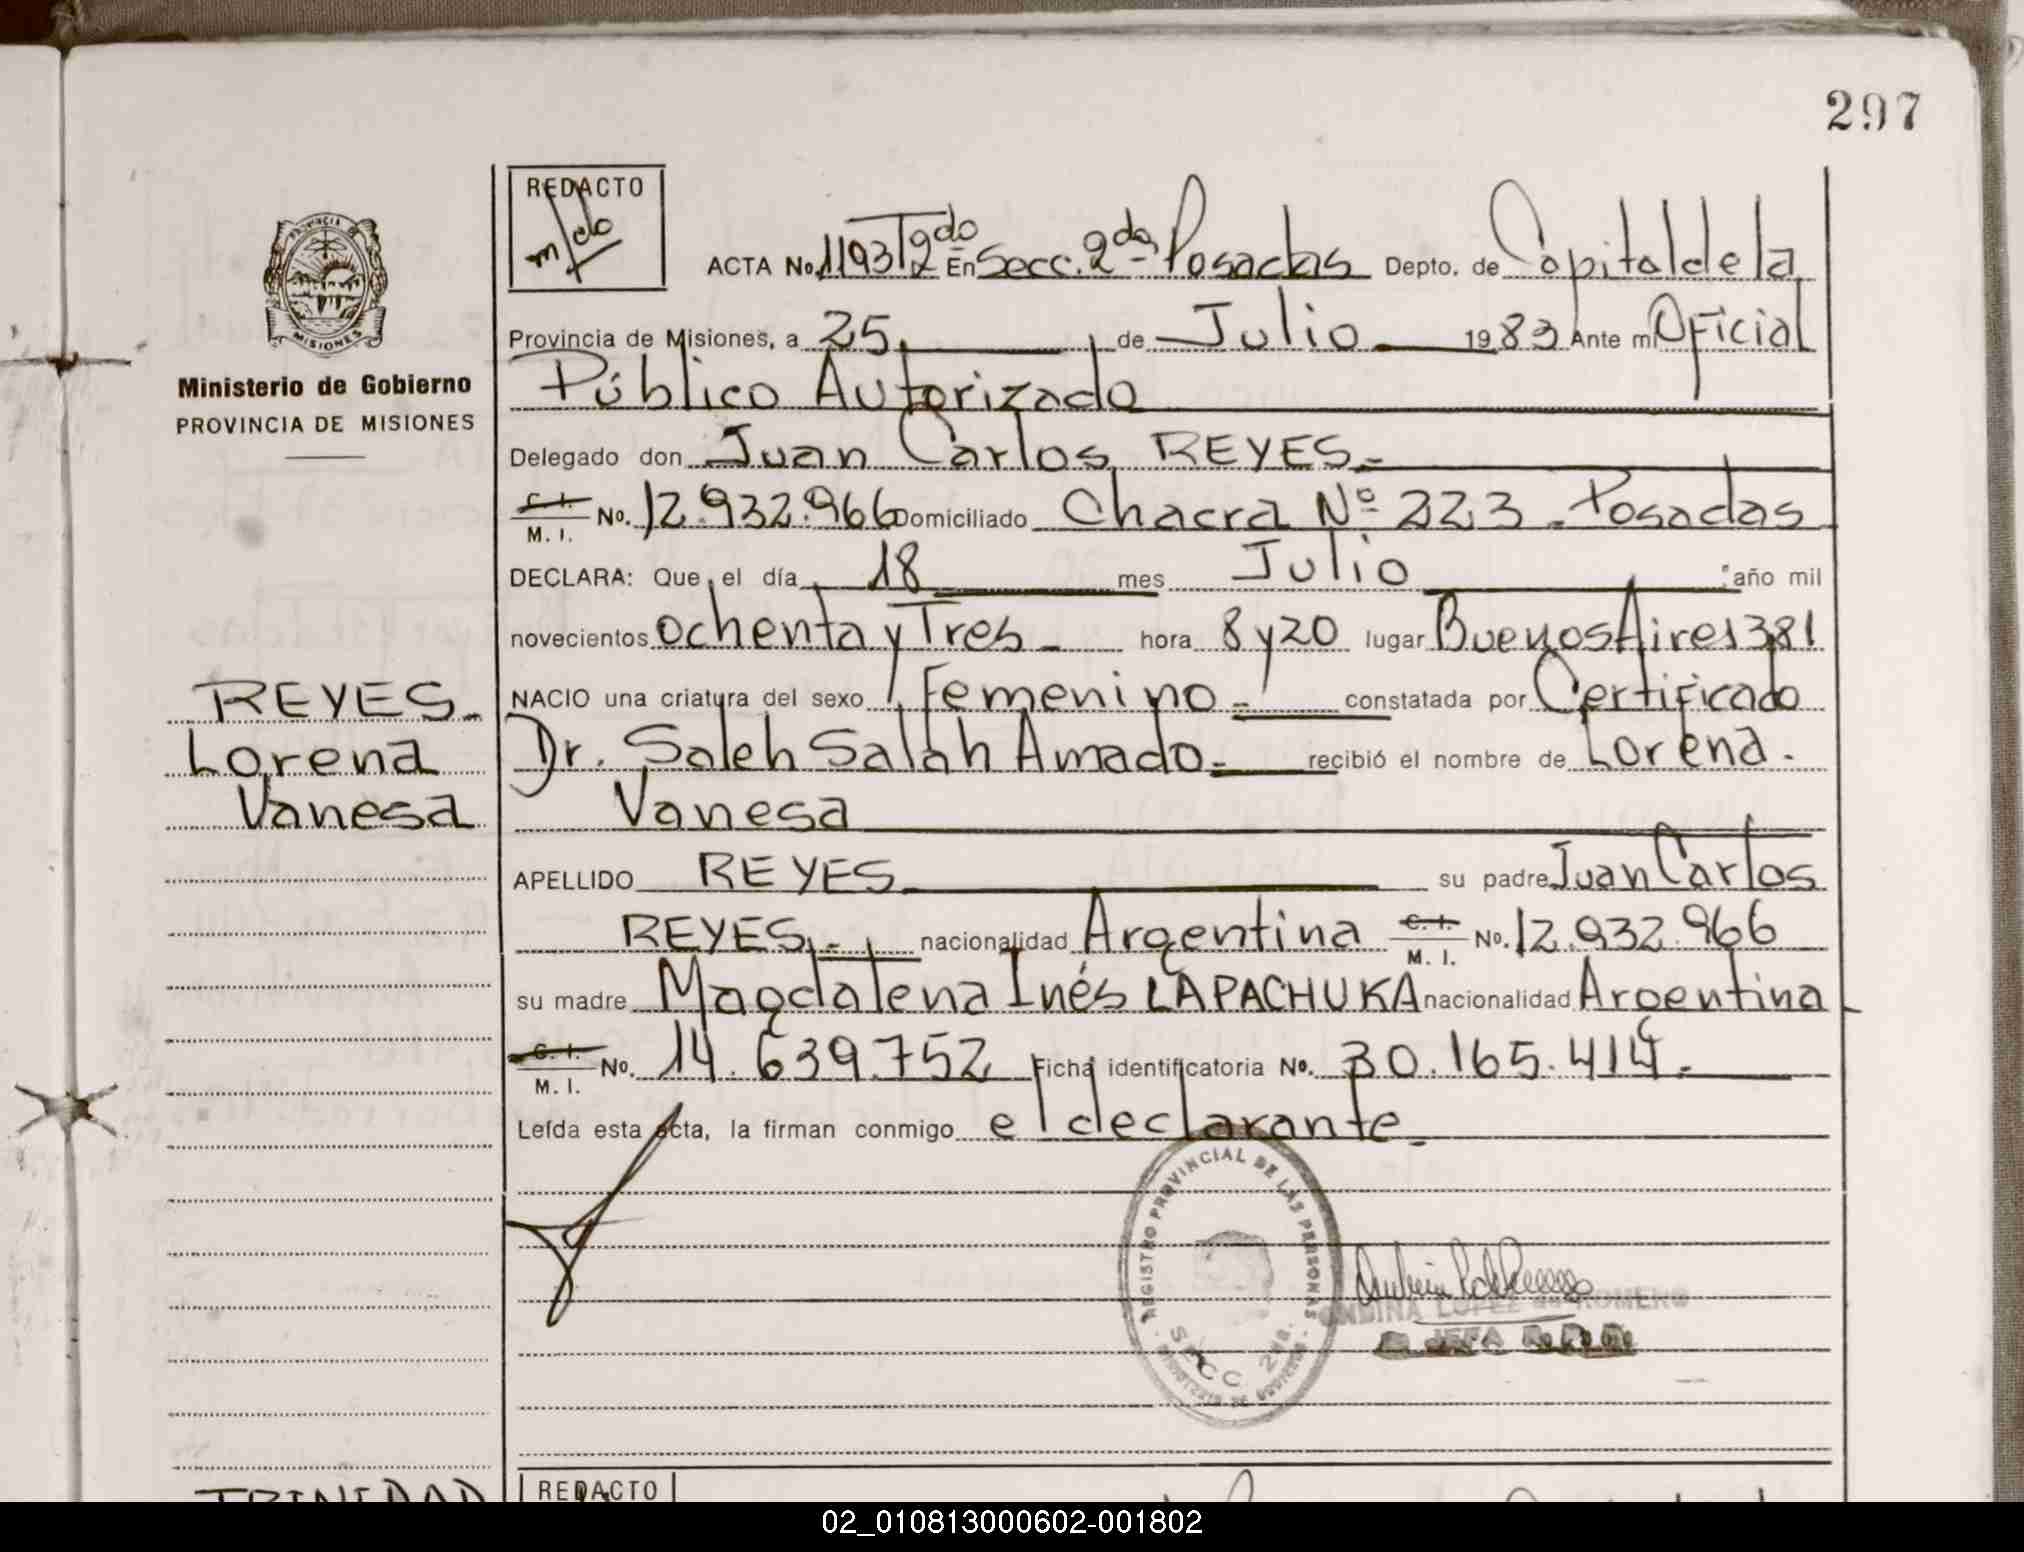 297
REDACTO
ACTA No. 1193 T 2do En Secc. 2da Posadas Depto. de Capital de la
PROVINCIA DE
MISIONES
Provincia de Misiones, a 25 de Julio 1983 Ante mi Oficial
Ministerio de Gobierno
PROVINCIA DE MISIONES
Público Autorizado
Delegado don Juan Carlos REYES.-
C. I. M. I. No. 12.932.966 Domiciliado Chacra Nº 223 - Posadas
DECLARA: Que el día 18 mes Julio año mil
novecientos ochenta y Tres - hora 8 y 20 lugar Buenos Aires 1381
REYES.
NACIO una criatura del sexo Femenino.- constatada por Certificado
Lorena
Dr. Saleh Salah Amado.- recibió el nombre de Lorena.
Vanesa
Vanesa
APELLIDO REYES su padre Juan Carlos
REYES.- nacionalidad Argentina C. I. M. I. No. 12.932.966
su madre Magdalena Inés LAPACHUKA nacionalidad Argentina
C. I. M. I. No. 14.639.752 Ficha identificatoria No. 30.165.414.-
Leída esta acta, la firman conmigo el declarante.
REGISTRO PROVINCIAL DE LAS PERSONAS
SECC 2da.
MINISTERIO DE GOBIERNO
LOPEZ de ROMERO
JEFA
TRINIDAD
REDACTO
02_010813000602-001802